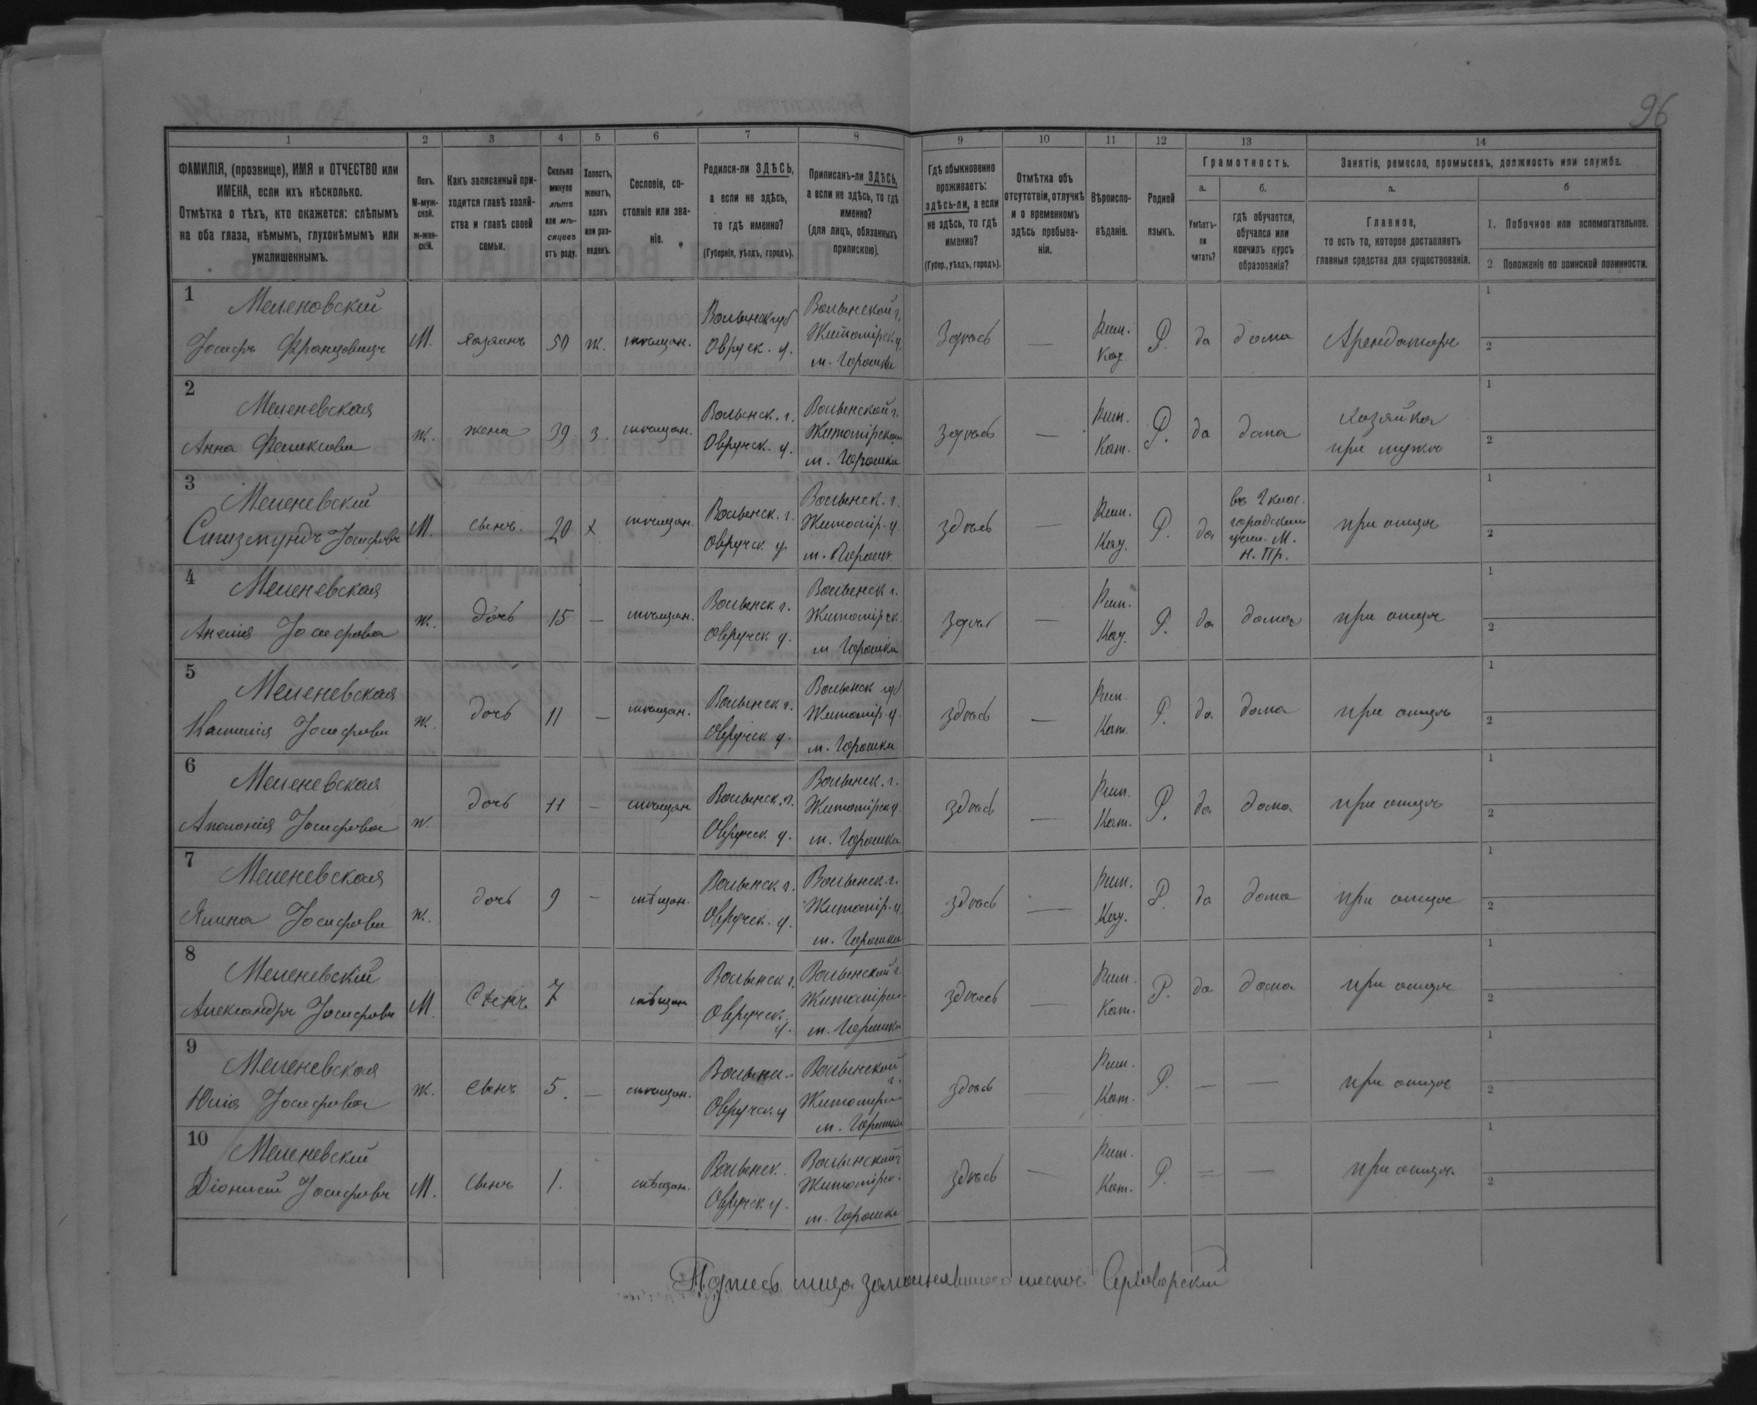 96
1 2 3 4 5 6 7 8 9 10 11 12 13 14
ФАМИЛІЯ, (прозвище), ИМЯ и ОТЧЕСТВО или
ИМЕНА, если ихъ нѣсколько.
Отмѣтка о тѣхъ, кто окажется: слѣпымъ
на оба глаза, нѣмымъ, глухонѣмымъ или
умалишеннымъ.
Полъ.
М-муж-
ской.
ж-жен-
скій.
Какъ записанный при-
ходится главѣ хозяй-
ства и главѣ своей
семьи.
Сколько
минуло
лѣтъ
или мѣ-
сяцевъ
отъ роду.
Холостъ,
женатъ,
вдовъ
или раз-
веденъ.
Сословіе, со-
стояніе или зва-
ніе.
Родился-ли ЗДѢСЬ,
а если не здѣсь,
то гдѣ именно?
(Губернія, уѣздъ, городъ).
Приписанъ-ли ЗДѢСЬ,
а если не здѣсь, то гдѣ
именно?
(для лицъ, обязанныхъ
припискою).
Гдѣ обыкновенно
проживаетъ:
здѣсь-ли, а если
не здѣсь, то гдѣ
именно?
(Губер., уѣздъ, городъ).
Отмѣтка объ
отсутствіи, отлучкѣ
и о временномъ
здѣсь пребыва-
ніи.
Вѣроиспо-
вѣданіе.
Родной
языкъ.
Грамотность.
а. б.
Умѣетъ-
ли
читать?
гдѣ обучается,
обучался или
кончилъ курсъ
образованія?
Занятіе, ремесло, промыселъ, должность или служба.
а. б
Главное,
то есть то, которое доставляетъ
главныя средства для существованія.
1. Побочное или вспомогательное.
2 Положеніе по воинской повинности.
1 Меленовскій Волынск губ Волынской г. Рим. 1
Іосифъ Францовичъ М. хозяинъ 50 ж. мѣщан. Овруч. у. Житомірск у. м. Горошки Здѣсь — Кат. Р. да дома Арендаторъ 2
2 Меленевская Волынск. г. Волынской г. Рим. 1
Анна Феликсова ж. жена 39 з. мѣщан. Овручск. у. Житомірской м. Горошки здѣсь — Кат. Р. да дома хозяйка при мужѣ 2
3 Меленевскій Волынск. г. Волынск. г. Рим. 1
Сигизмундъ Іосифовъ М. сынъ. 20 х мѣщан. Овручск у. Житомір. у. м. Горошк здѣсь — Кат. Р. да въ 2 клас. городском учил. М. Н. Пр. при отцѣ 2
4 Меленевская Волынск г. Волынск г. Рим. 1
Анелія Іосифова ж. дочь 15 — мѣщан. Овручск у. Житомірск. м Горошки здѣсь — Кат. Р. да дома при отцѣ 2
5 Меленевская Волынск г. Волынск губ Рим. 1
Іосифова ж. дочь 11 — мѣщан. Овручск у. Житомір. у. м. Горошки здѣсь — Кат. Р. да дома при отцѣ 2
6 Меленевская Волынск. г. Волынск. г. Рим. 1
Аполонія Іосифова ж. дочь 11 — мѣщан Овручск у. Житомірск у. м. Горошки здѣсь — Кат. Р. да дома при отцѣ 2
7 Меленевская Волынск г. Волынск. г. Рим. 1
Янина Іосифова ж. дочь 9 — мѣщан. Овручск. у. Житомір. у. м. Горошки здѣсь — Кат. Р. да дома при отцѣ 2
8 Меленевскій Волынск г. Волынской г. Рим. 1
Александръ Іосифовъ М. Сынъ 7 мѣщан Овручск. у. Житомірск м. Горошки здѣсь — Кат. Р. да дома при отцѣ 2
9 Меленевская Волынс. Волынской г. Рим. 1
Юлія Іосифова ж. сынъ 5. — мѣщан. Овручск у Житомирск м. Горошки здѣсь — Кат. Р. — — при отцѣ 2
10 Меленевскій Волынск. Волынской Рим. 1
Діонисій Іосифовъ М. сынъ 1. мѣщан. Овручск у. Житомірск. м. Горошки здѣсь — Кат. Р. — — при отцѣ. 2
Подпись лица заполнявшаго листъ